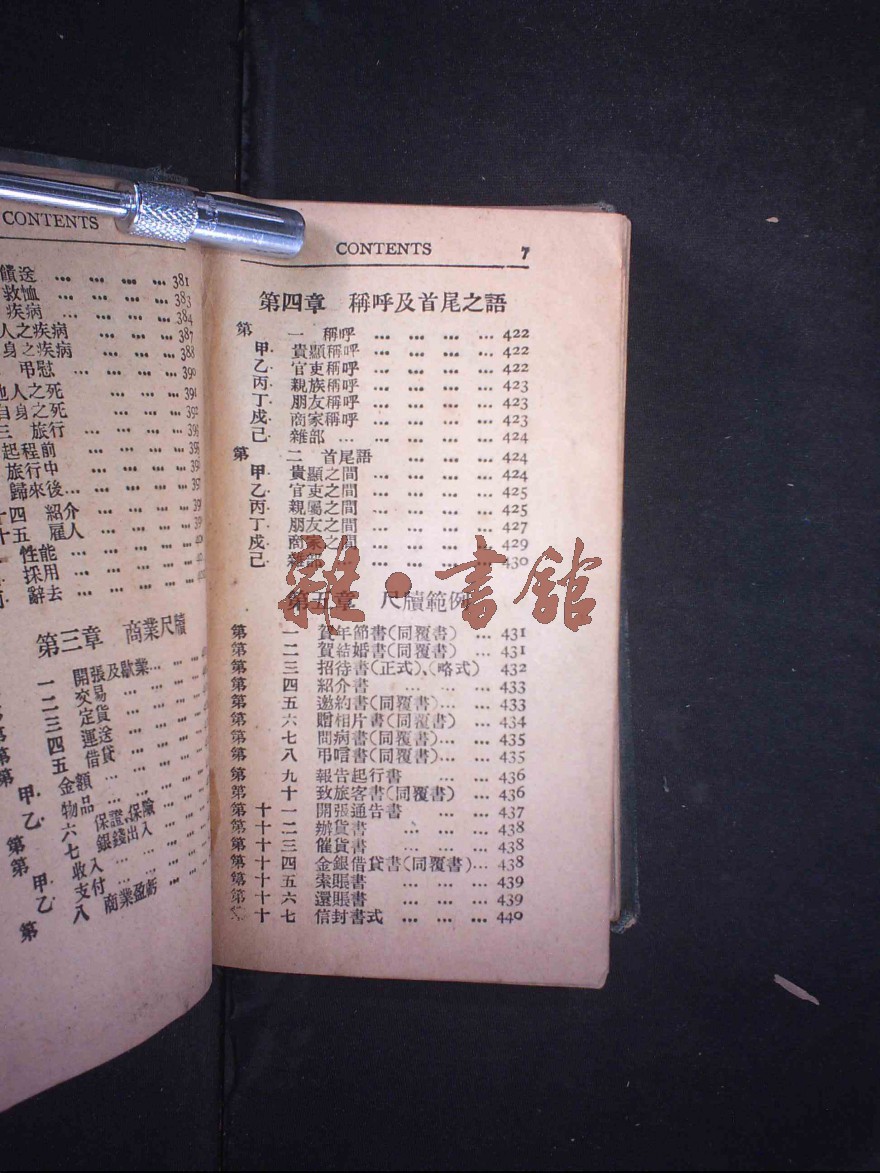 CONTENTS
饋送 … … … … 381
救恤 … … … … 383
疾病 … … … … 384
人之疾病 … … … 387
身之疾病 … … … 388
弔慰 … … … … 390
他人之死 … … … 391
自身之死 … … … 392
三 旅行 … … … … 395
起程前 … … …
旅行中 … … …
歸來後… … … …
十四 紹介 … … …
十五 雇人 … … …
性能 … … … …
採用 … … … …
辭去 … … … …
第三章 商業尺牘
一 開張及歇業… …
二 交易 … … …
三 定貨 … … …
四 運送 … … …
五 借貸 … … …
甲. 金額 … … …
乙. 物品 … … …
第 六 保證、保險
第 七 銀錢出入
甲. 收入 … … …
乙. 支付 … … …
第 八 商業盈虧 … …
CONTENTS 7
第四章 稱呼及首尾之語
第 一 稱呼 … … … … 422
甲. 貴顯稱呼 … … … … 422
乙. 官吏稱呼 … … … … 422
丙. 親族稱呼 … … … … 423
丁. 朋友稱呼 … … … … 423
戊. 商家稱呼 … … … … 423
己. 雜部 … … … … … 424
第 二 首尾語 … … … … 424
甲. 貴顯之間 … … … … 424
乙. 官吏之間 … … … … 425
丙. 親屬之間 … … … … 425
丁. 朋友之間 … … … … 427
戊. 商家之間 … … … … 429
己. 雜部 … … … … … 430
第五章 尺牘範例
第 一 賀年節書(同覆書) … 431
第 二 賀結婚書(同覆書) … 431
第 三 招待書(正式)、(略式) 432
第 四 紹介書 … … … … 433
第 五 邀約書(同覆書)… … 433
第 六 贈相片書(同覆書) … 434
第 七 問病書(同覆書)… … 435
第 八 弔唁書(同覆書)… … 435
第 九 報告起行書 … … 436
第 十 致旅客書(同覆書) … 436
第 十 一 開張通告書 … … 437
第 十 二 辦貨書 … … … 438
第 十 三 催貨書 … … … 438
第 十 四 金銀借貸書(同覆書)… 438
第 十 五 索賬書 … … … 439
第 十 六 還賬書 … … … 439
第 十 七 信封書式 … … … 440
雜·書館